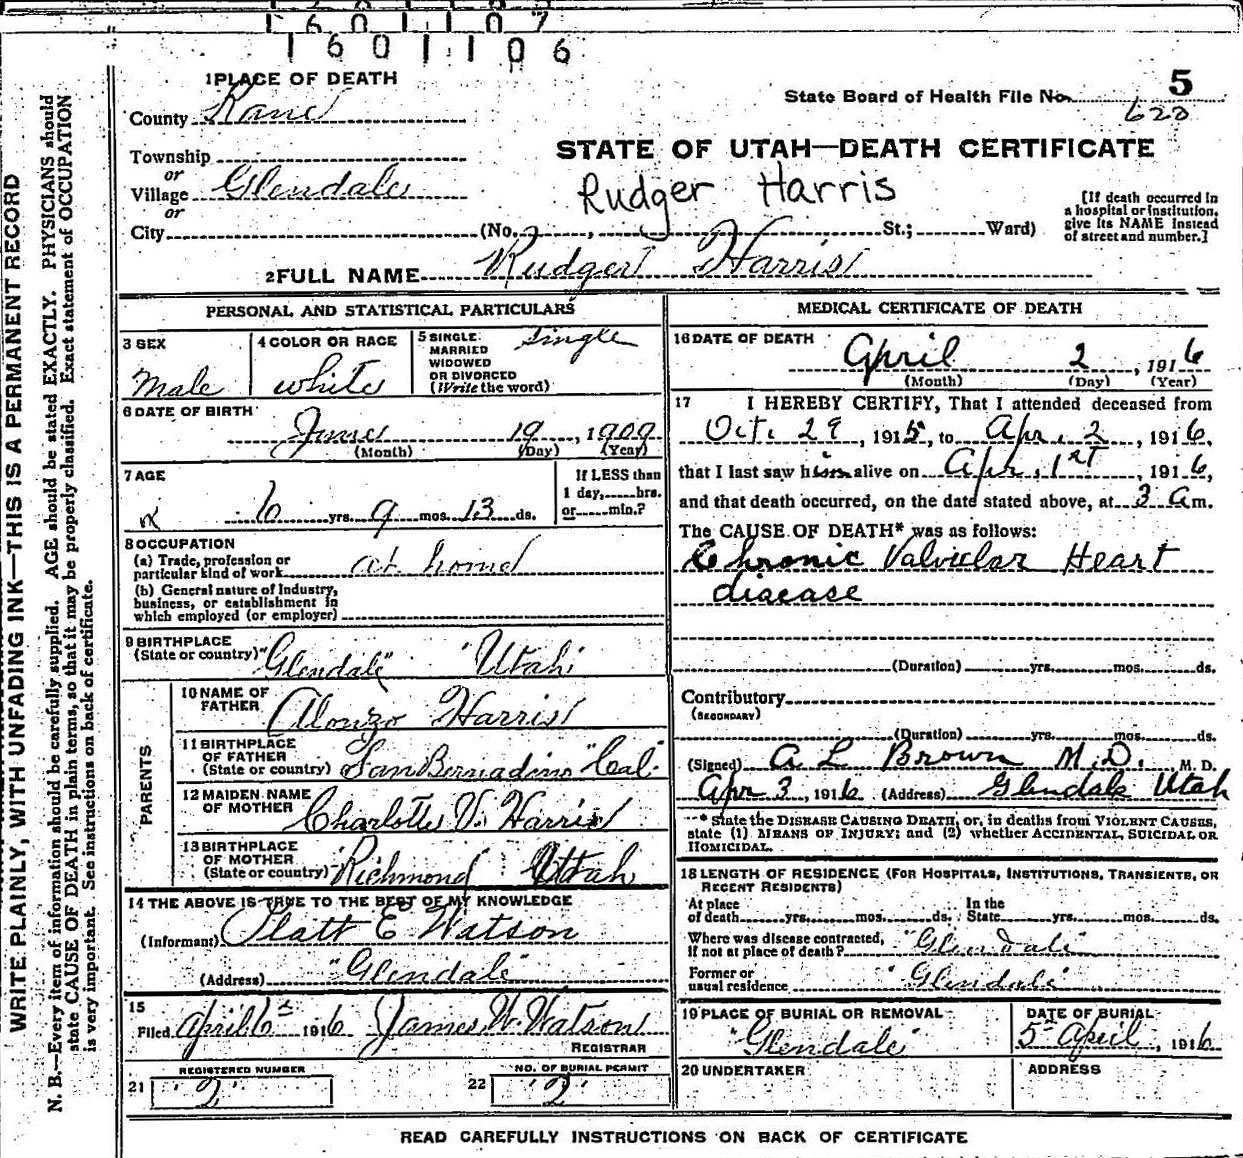 1601107
1601106
1 PLACE OF DEATH
County Kane
Township
or
Village Glendale
or
City (No. , St.; Ward)
5
State Board of Health File No.
620
STATE OF UTAH—DEATH CERTIFICATE
Rudger Harris
[If death occurred in
a hospital or institution,
give its NAME instead
of street and number.]
2 FULL NAME Rudger Harris
PERSONAL AND STATISTICAL PARTICULARS
3 SEX
Male
4 COLOR OR RACE
white
5 SINGLE
MARRIED
WIDOWED
OR DIVORCED
(Write the word)
Single
6 DATE OF BIRTH
June 19, 1909
(Month) (Day) (Year)
7 AGE
6 yrs. 9 mos. 13 ds.
If LESS than
1 day, hrs.
or min.?
8 OCCUPATION
(a) Trade, profession or
particular kind of work at home
(b) General nature of Industry,
business, or establishment in
which employed (or employer)
9 BIRTHPLACE
(State or country) "Glendale" "Utah
PARENTS
10 NAME OF
FATHER Alonzo Harris
11 BIRTHPLACE
OF FATHER
(State or country) San Bernadino "Cal."
12 MAIDEN NAME
OF MOTHER Charlotte V. Harris
13 BIRTHPLACE
OF MOTHER
(State or country) "Richmond" Utah
14 THE ABOVE IS TRUE TO THE BEST OF MY KNOWLEDGE
(Informant) Platt E Watson
(Address) "Glendale"
15
Filed April 6th 1916 James W. Watson
REGISTRAR
REGISTERED NUMBER
21 "2"
NO. OF BURIAL PERMIT
22 "2"
MEDICAL CERTIFICATE OF DEATH
16 DATE OF DEATH
April 2, 1916
(Month) (Day) (Year)
17 I HEREBY CERTIFY, That I attended deceased from
Oct. 29, 1915, to Apr. 2, 1916,
that I last saw him alive on Apr. 1st, 1916,
and that death occurred, on the date stated above, at 3 a m.
The CAUSE OF DEATH* was as follows:
Chronic Valvular Heart
disease
(Duration) yrs. mos. ds.
Contributory
(SECONDARY)
(Duration) yrs. mos. ds.
(Signed) A L Brown M.D. M. D.
Apr 3, 1916 (Address) Glendale Utah
* State the DISEASE CAUSING DEATH, or, in deaths from VIOLENT CAUSES,
state (1) MEANS OF INJURY; and (2) whether ACCIDENTAL, SUICIDAL OR
HOMICIDAL.
18 LENGTH OF RESIDENCE (FOR HOSPITALS, INSTITUTIONS, TRANSIENTS, OR
RECENT RESIDENTS)
At place
of death yrs. mos. ds.
In the
State yrs. mos. ds.
Where was disease contracted,
if not at place of death? "Glendale"
Former or
usual residence "Glendale"
19 PLACE OF BURIAL OR REMOVAL
"Glendale"
DATE OF BURIAL
5th April, 1916
20 UNDERTAKER
ADDRESS
READ CAREFULLY INSTRUCTIONS ON BACK OF CERTIFICATE
WRITE PLAINLY, WITH UNFADING INK—THIS IS A PERMANENT RECORD
N. B.—Every item of information should be carefully supplied. AGE should be stated EXACTLY. PHYSICIANS should
state CAUSE OF DEATH in plain terms, so that it may be properly classified. Exact statement of OCCUPATION
is very important. See instructions on back of certificate.